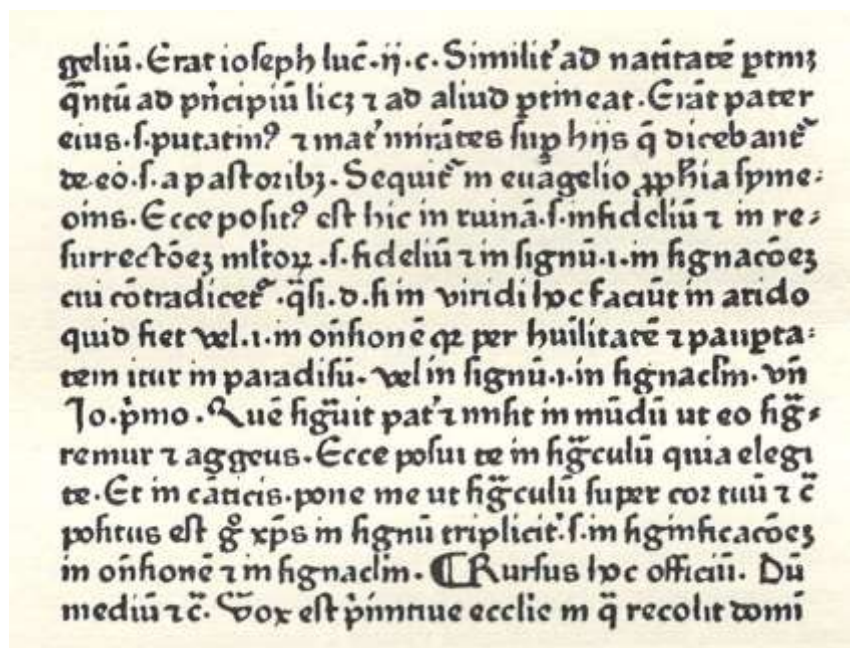 geliū. Erat ioseph luc̄. ij. c. Similit' ad natītatē ꝑtinꝫ
q̄ntū ad pⁱncipiū licꝫ ⁊ ad aliud ꝑtineat. Erāt pater
eius. s. putatiuꝰ ⁊ mat' mirātes suꝑ hijs q̄ dicebant᷑
de eo. s. a pastoribꝫ. Sequit᷑ in euāgelio ꝓph̄ia syme⸗
onis. Ecce positꝰ est hic in ruinā. s. infideliū ⁊ in re⸗
surrectōeꝫ ml̄toꝝ. s. fideliū ⁊ in signū. i. in signacōeꝫ
cui cōtradicet᷑. q̄si. d. si in viridi hoc faciūt in arido
quid fiet vel. i. in on̄sionē qꝛ per huīlitatē ⁊ pauꝑta⸗
tem itur in paradisū. vel in signū. i. in signacl̄m. vn̄
Io. pⁱmo. Quē figͣuit pat' ⁊ misit in mūdū ut eo figͣ⸗
remur ⁊ aggeus. Ecce posui te in figͣculū quia elegi
te. Et in cāticis. pone me ut figͣculū super cor tuū ⁊ c̄
positus est gͦ xp̄s in signū triplicit'. s. in significacōeꝫ
in on̄sionē ⁊ in signacl̄m. ¶ Rursus hoc officiū. Dū
mediū ⁊ c̄. Vox est pⁱmitiue ecclie in q̄ recolit domī